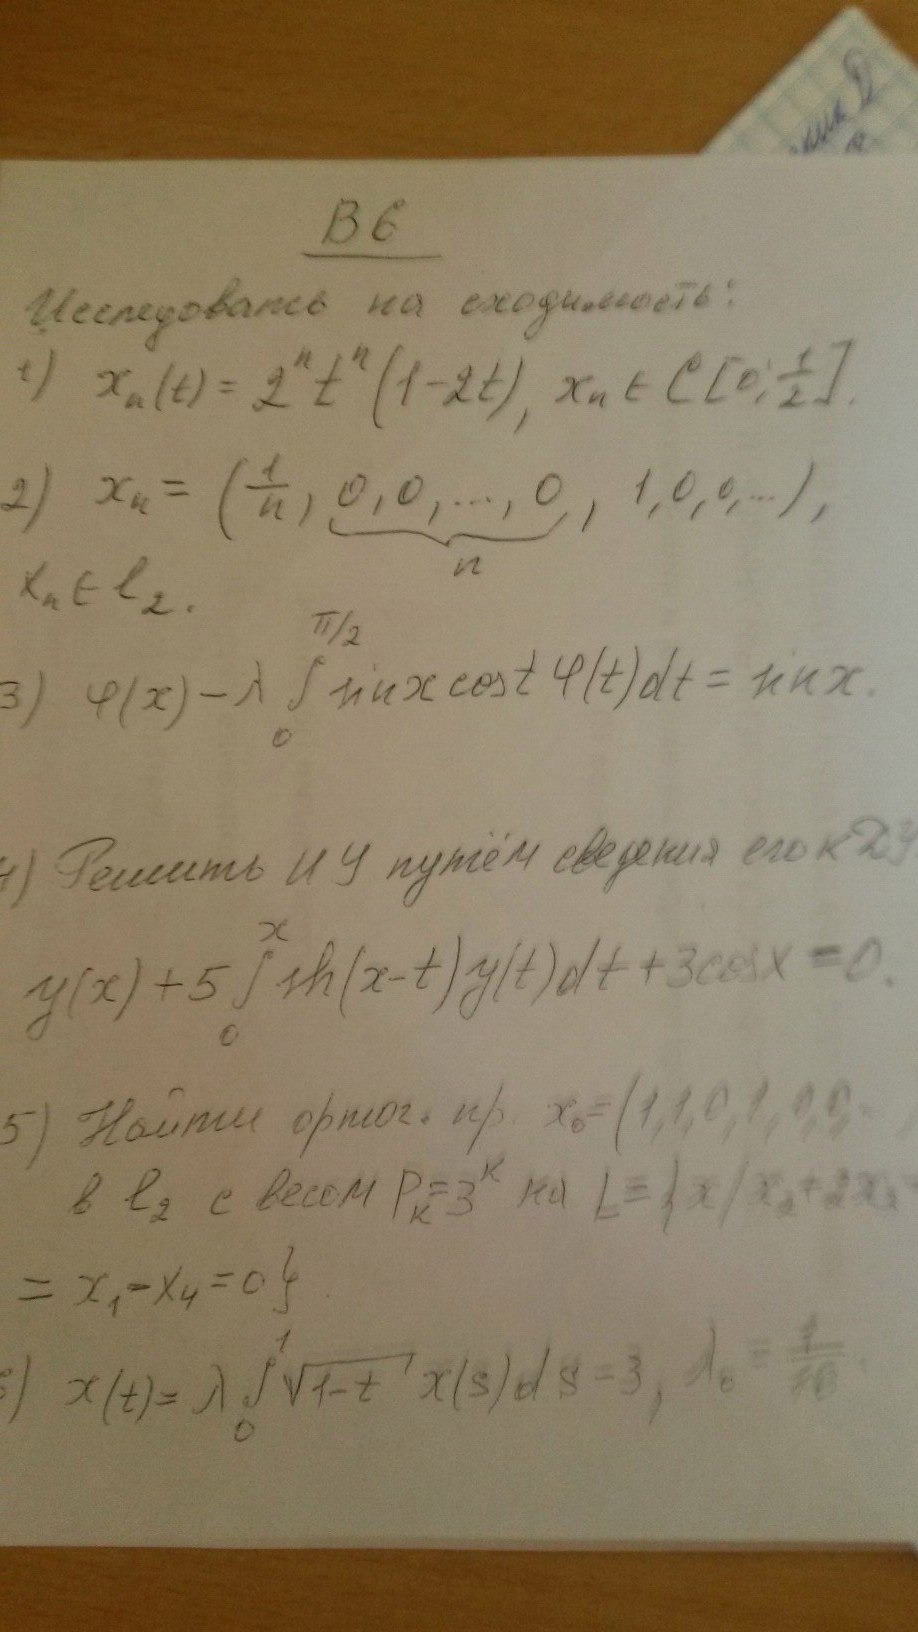 В 6
Исследовать на сходимость:
1) xₙ(t) = 2ⁿ tⁿ (1-2t), xₙ ∈ C[0; 1/2].
2) xₙ = (1/n, 0, 0, ..., 0, 1, 0, 0, ...),
n
xₙ ∈ l₂.
π/2
3) φ(x) - λ ∫ sinx cost φ(t)dt = sinx.
0
4) Решить ИУ путём сведения его к ДУ
x
y(x) + 5 ∫ sh(x-t)y(t)dt + 3cosx = 0.
0
5) Найти ортог. пр. x₀ = (1,1,0,1,0,0,
в l₂ с весом Pₖ = 3ᵏ на L = {x/x₂+2x₃
= x₁ - x₄ = 0}.
1
) x(t) = λ ∫ √(1-t) x(s)ds = 3, λ₀ = 1/10.
0